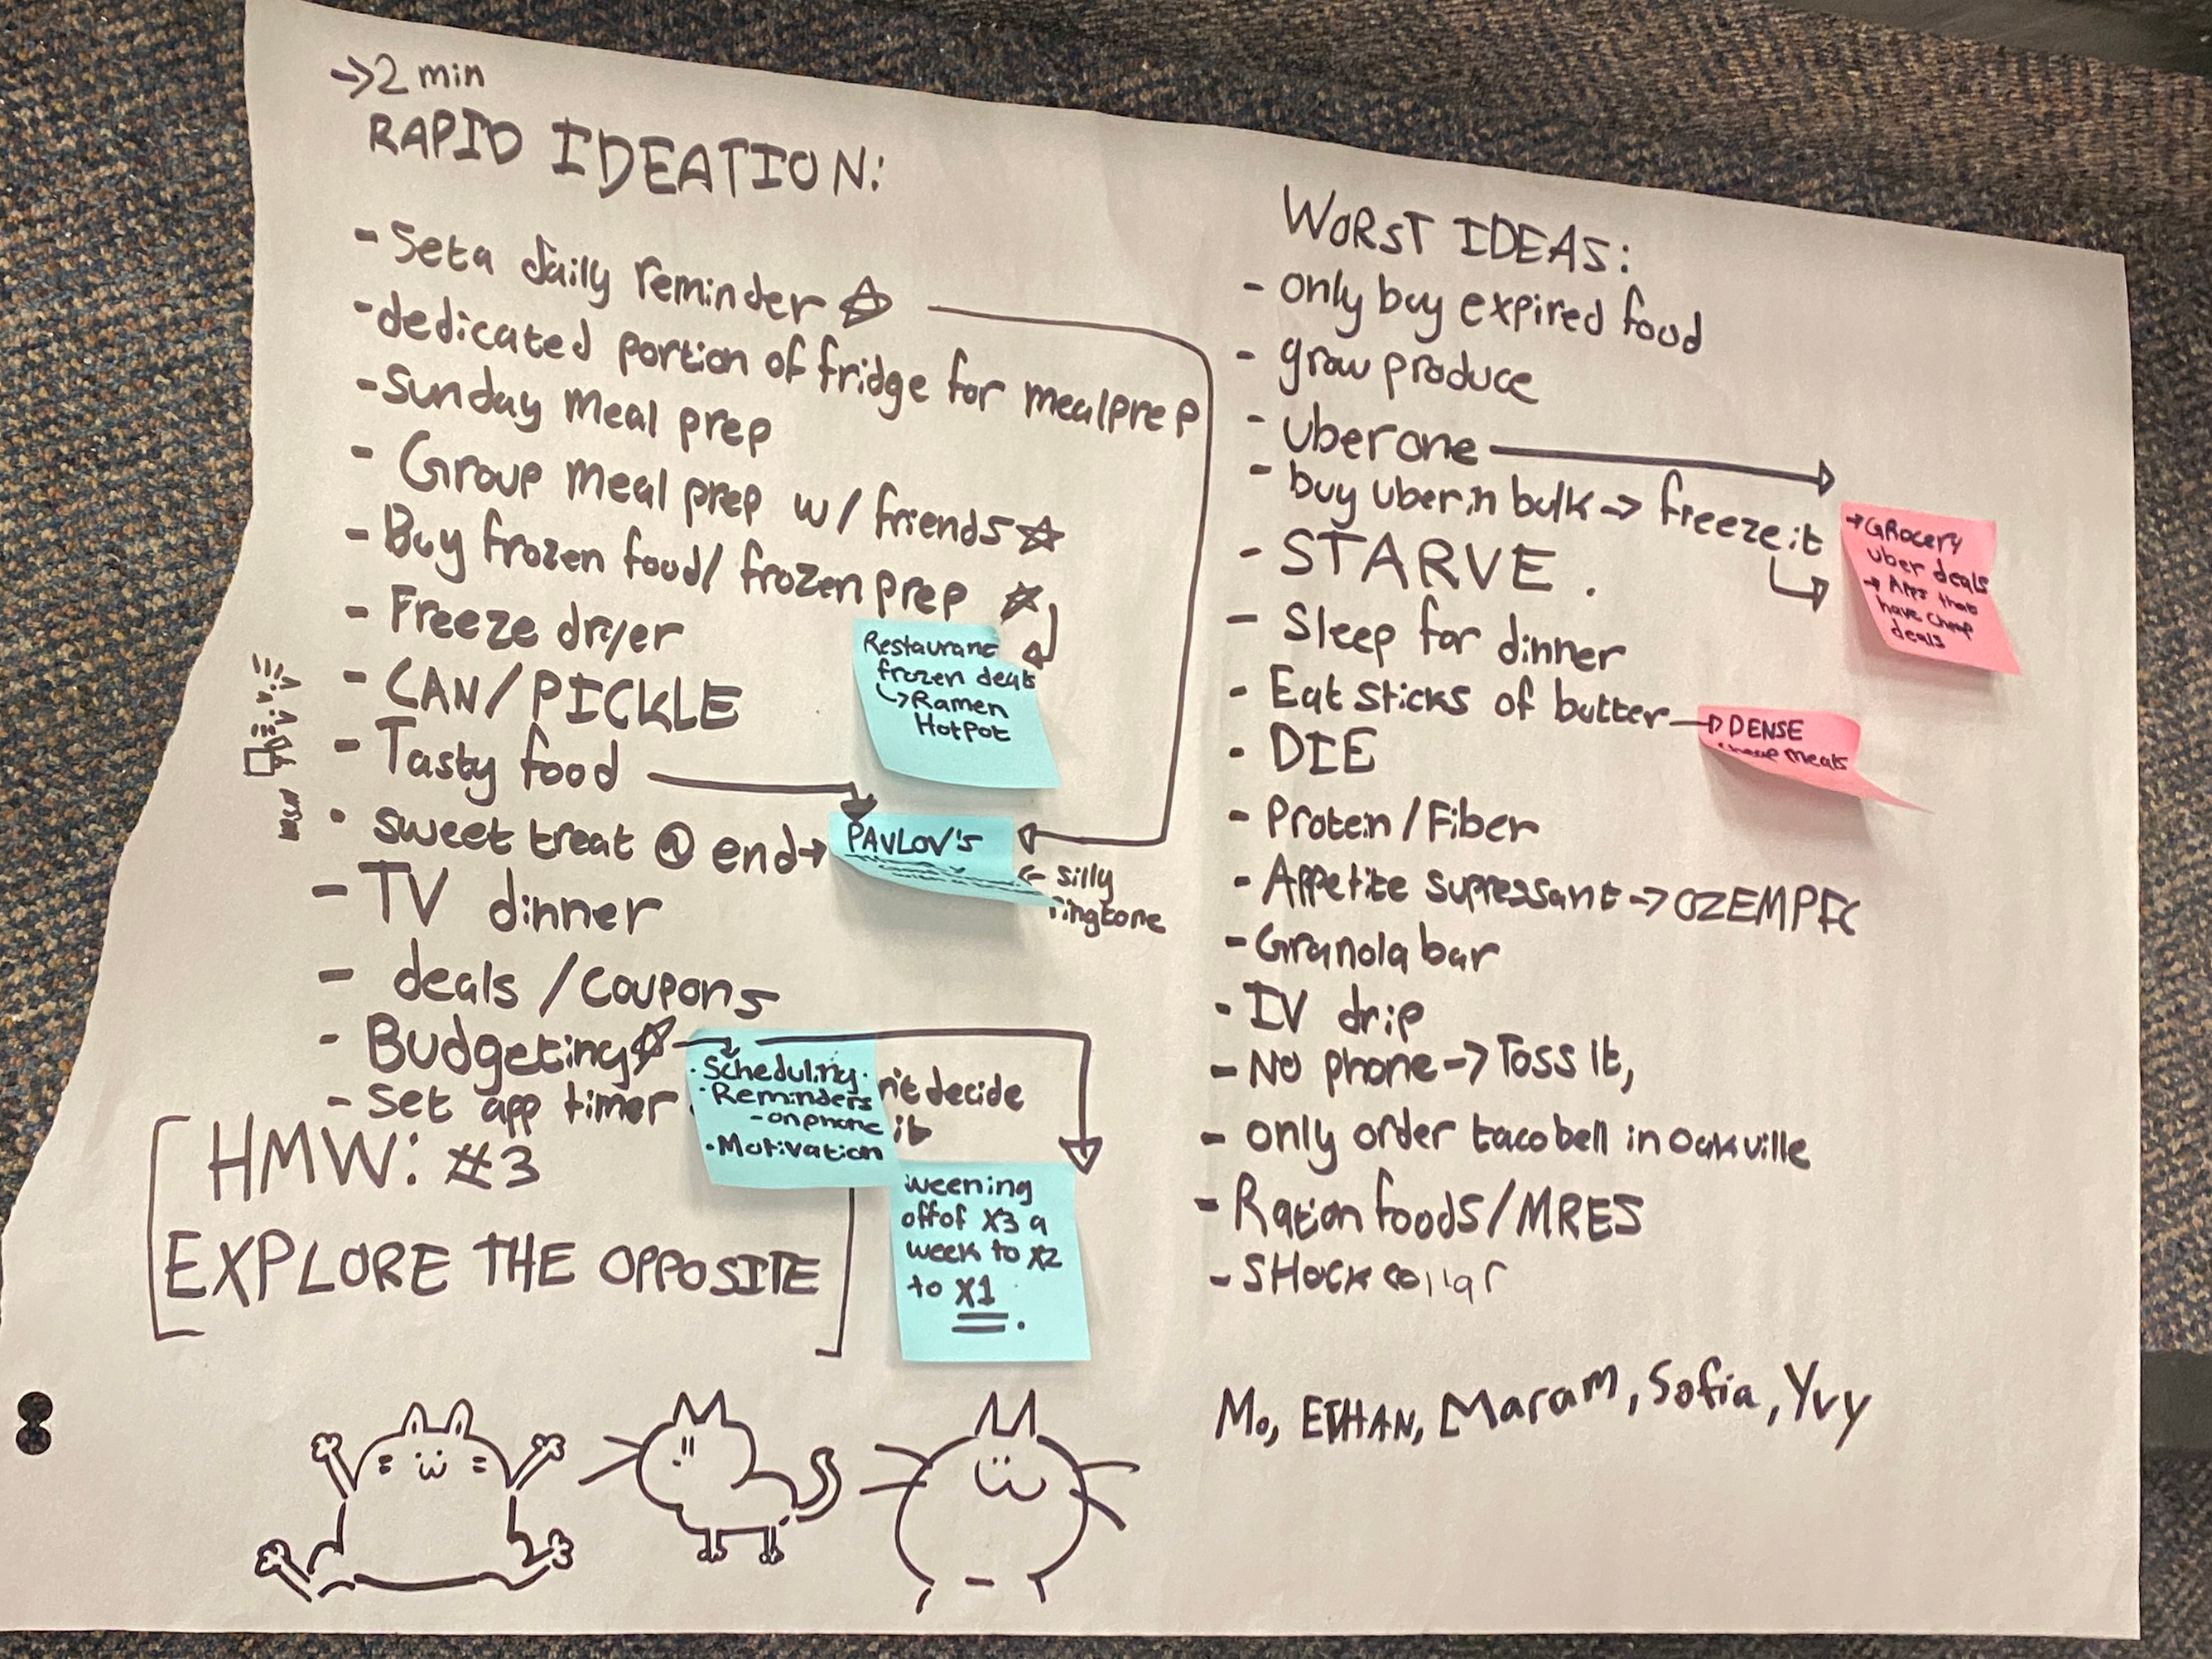 →2 min
RAPID IDEATION:
- Set a daily reminder ☆
- dedicated portion of fridge for mealprep
- Sunday meal prep
- Group meal prep w/ friends ☆
- Buy frozen food/ frozen prep ☆
- Freeze dryer
- CAN/PICKLE
- Tasty food
· sweet treat @ end→
- TV dinner
- deals /coupons
- Budgeting ☆
- Set app timer
n't decide
it
Restaurant
frozen deals
↳Ramen
Hotpot
PAVLOV'S
← silly
ringtone
· Scheduling·
· Reminders
- on phone
· Motivation
weening
off of X3 a
week to X2
to X1.
HMW: #3
EXPLORE THE OPPOSITE
WORST IDEAS:
- only buy expired food
- grow produce
- Uber one →
- buy uber in bulk → freeze it
- STARVE.
- Sleep for dinner
- Eat sticks of butter
- DIE
- Protein/Fiber
- Appetite supressant → OZEMPIC
- Granola bar
· IV drip
- No phone → Toss it,
- only order taco bell in oakville
- Ration foods/MRES
- SHock collar
→GRocery
uber deals
→ Apps that
have cheap
deals
DENSE
cheap meats
Mo, ETHAN, Maram, Sofia, Yvy